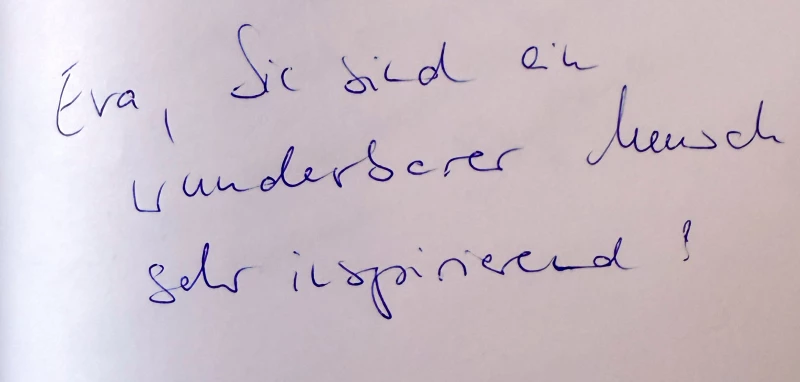 Eva, Sie sind ein
wunderbarer Mensch
sehr inspirierend!